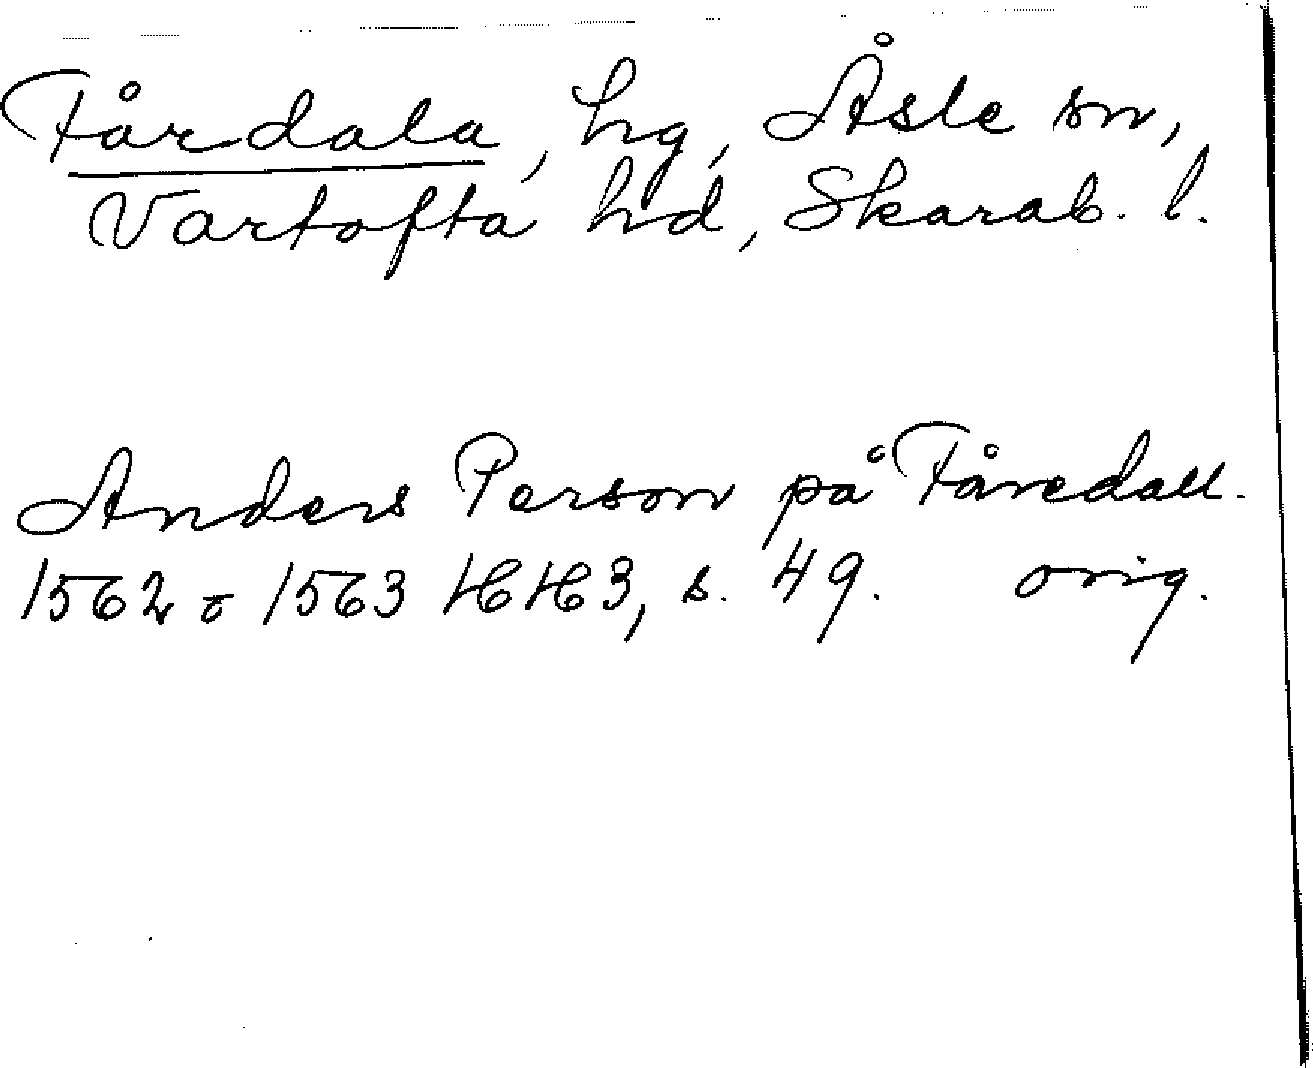 Fårdala, hg, Åsle sn,
Vartofta hd, Skarab. l.
Anders Person på Fåredall.
1562 o 1563 HH3, s. 49. orig.